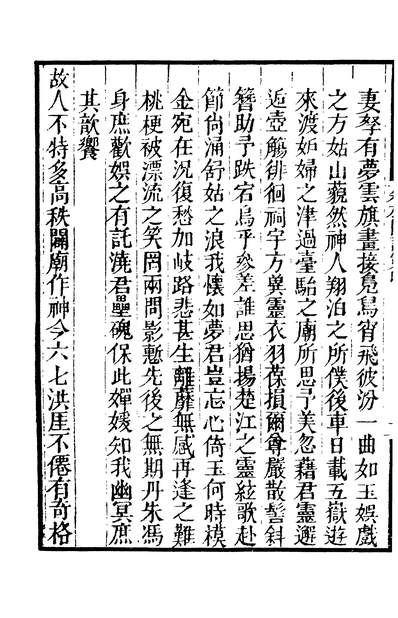 妻孥有夢雲旗畫接鳧舄宵飛彼汾一曲如玉娛戲
之方姑山藐然神人翔泊之所僕後車日載五嶽遊
來渡妬婦之津過臺駘之廟所思予美忽藉君靈邂
逅壺觴徘徊祠宇方冀靈衣羽葆損爾尊嚴散髻斜
簪助予跌宕烏乎參差誰思猶揚楚江之靈絃歌赴
節尙涌舒姑之浪我懷如夢君豈忘心倚玉何時模
金宛在況復愁加岐路悲甚生離蘼蕪感再逢之難
桃梗被漂流之笑罔兩問影慙先後之無期丹朱馮
身庶歡娛之有託漉君壘磈保此嬋媛知我幽冥庶
其歆饗
故人不特多高秩闢廟作神今六七洪崖不僊有奇格